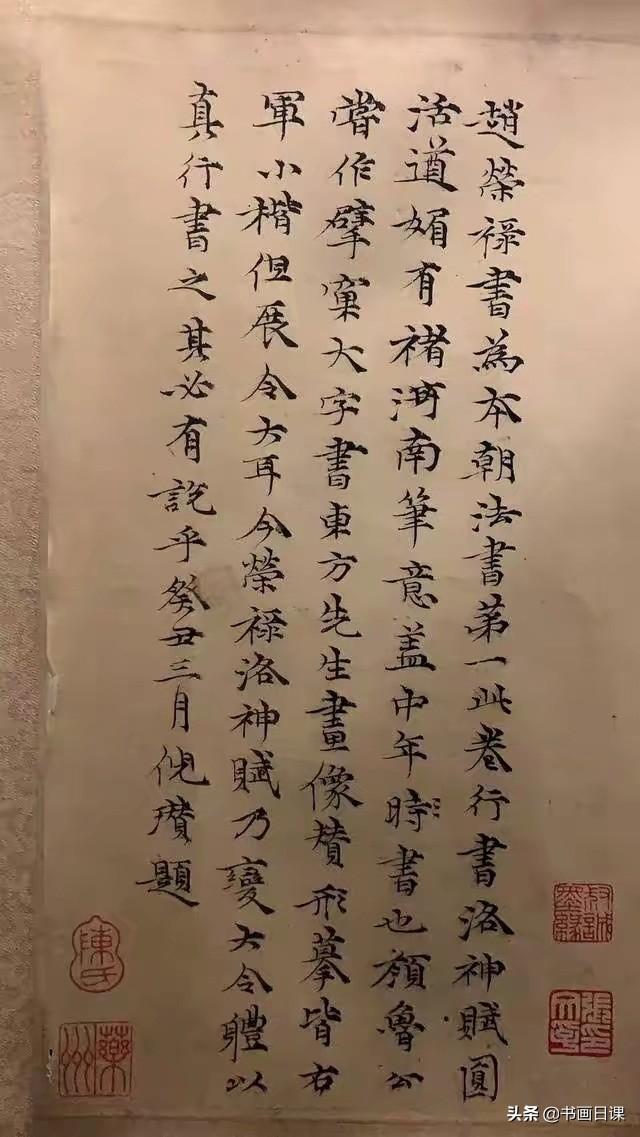 趙榮祿書為本朝法書第一此卷行書洛神賦圓
活遒媚有褚河南筆意蓋中年時書也顏魯公
嘗作擘窠大字書東方先生畫像賛形摹皆右
軍小楷但展令大耳今榮祿洛神賦乃變大令體以
真行書之其必有說乎癸丑三月倪瓚題
陳氏
蘂州
头条 @书画日课